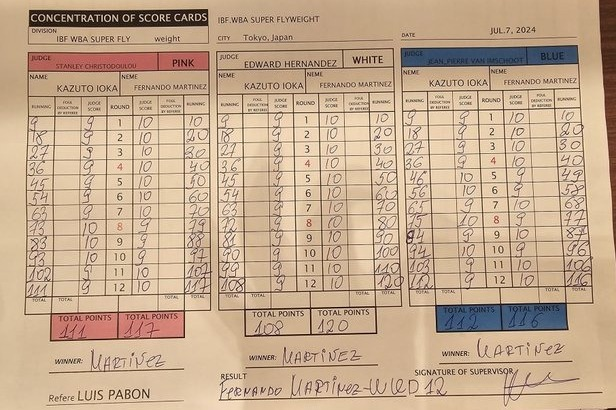 CONCENTRATION OF SCORE CARDS IBF.WBA SUPER FLYWEIGHT
DIVISION IBF WBA SUPER FLY weight CITY Tokyo, Japan DATE JUL.7, 2024
JUDGE STANLEY CHRISTODOULOU PINK JUDGE EDWARD HERNANDEZ WHITE JUDGE JEAN PIERRE VAN IMSCHOOT BLUE
NAME NEME NAME NEME NAME NEME
KAZUTO IOKA FERNANDO MARTINEZ KAZUTO IOKA FERNANDO MARTINEZ KAZUTO IOKA FERNANDO MARTINEZ
RUNNING FOUL DEDUCTION BY REFEREE JUDGE SCORE ROUND JUDGE SCORE FOUL DEDUCTION BY REFEREE RUNNING RUNNING FOUL DEDUCTION BY REFEREE JUDGE SCORE ROUND JUDGE SCORE FOUL DEDUCTION BY REFEREE RUNNING RUNNING FOUL DEDUCTION BY REFEREE JUDGE SCORE ROUND JUDGE SCORE FOUL DEDUCTION BY REFEREE RUNNING
9 9 1 10 10 9 9 1 10 10 9 9 1 10 10
18 9 2 10 20 18 9 2 10 20 18 9 2 10 20
27 9 3 10 30 27 9 3 10 30 27 9 3 10 30
36 9 4 10 40 36 9 4 10 40 36 9 4 10 40
45 9 5 10 50 45 9 5 10 50 46 10 5 9 49
54 9 6 10 60 54 9 6 10 60 56 10 6 9 58
63 9 7 10 70 63 9 7 10 70 65 9 7 10 68
73 10 8 9 79 72 9 8 10 80 75 10 8 9 77
83 10 9 9 88 81 9 9 10 90 84 9 9 10 87
93 10 10 9 97 90 9 10 10 100 94 10 10 9 96
102 9 11 10 107 99 9 11 10 110 103 9 11 10 106
111 9 12 10 117 108 9 12 10 120 112 9 12 10 116
TOTAL TOTAL TOTAL TOTAL TOTAL TOTAL
TOTAL POINTS TOTAL POINTS TOTAL POINTS TOTAL POINTS TOTAL POINTS TOTAL POINTS
111 117 108 120 112 116
WINNER: MARTINEZ WINNER: MARTINEZ WINNER: MARTINEZ
RESULT SIGNATURE OF SUPERVISOR
Refere LUIS PABON FERNANDO MARTINEZ-W UD 12